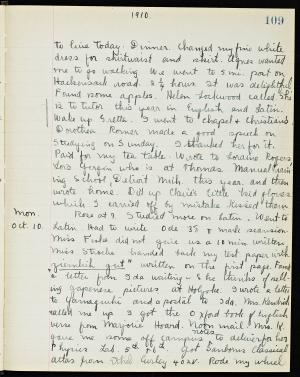 1910.
109
to line today. Dinner. Changed my fine white
dress for shirtwaist and skirt. Agnes wanted
me to go walking. We went to 5 mi. post on
Hackensack road 2 ½ hours. It was delightful
Found some apples. Helen Lockwood called. She
is to tutor this year in English and Latin.
Wake up I went to chapel + Christians
Dorothea Romer made a good speech on
Studying on Sunday. I thanked her for it.
Paid for my tea table. Wrote to Loraine Rogers
Lois who is at Thomas Manual Train
ing School Detroit Mich. this year, and then
wrote home. Did up Claire's little tad gloves
which I carried off by mistake. Kissed them
Mon.
Rose at 7. Studied more on Latin. Went to
Oct. 10.
Latin. Had to write Ode 35 + mark scansion
Miss Fiske did not give us a 10 min. written,
Miss handed back my test paper with
"greenish gut" written on the first page. Found
a letter from Ida waiting. She thinks of sell-
ing Japanese pictures at Holyoke. I wrote a letter
to Yamaguchi and a postal to Ida. Mrs. Kendrick
called me up. I got the Oxford book of English
verse from Marjorie Hoard. Noon mail. Mrs. K.
gave me some off campus notes to deliver for her
Physics Lab. 5th + 6th. Got Sanborn's classical
atlas from Ethel Gurley 40 & V. Rode my wheel